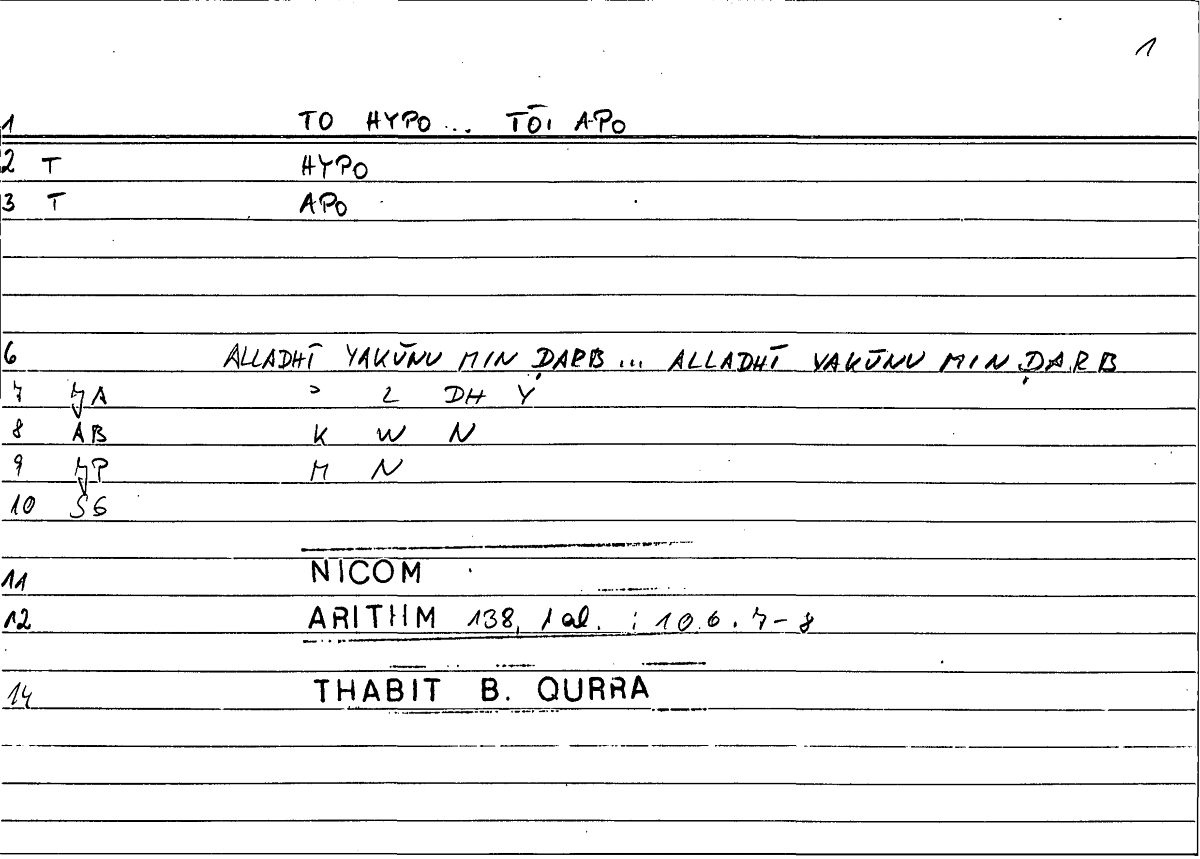 1
1 TO HYPO... TŌI APO
2 T HYPO
3 T APO
6 ALLADHĪ YAKŪNU MIN ḌARB ... ALLADHĪ YAKŪNU MIN ḌARB
7 JA ʾ L DH Y
8 AB K W N
9 JP M N
10 SG
11 NICOM
12 ARITHM 138, 1 al. : 106. 7-8
14 THABIT B. QURRA